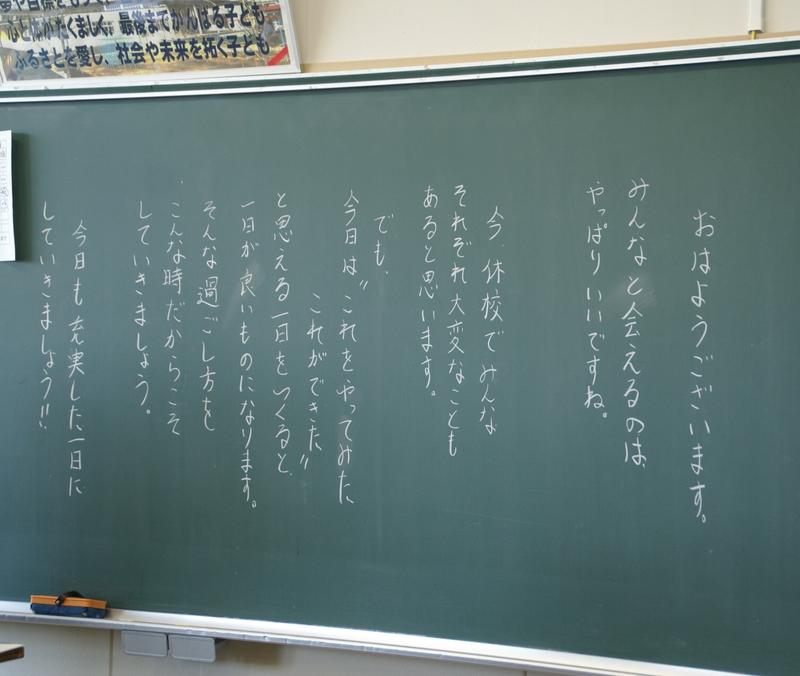 心と体がたくましく、最後までがんばる子ども
ふるさとを愛し、社会や未来を拓く子ども
おはようございます。
みんなと会えるのは、
やっぱりいいですね。
今、休校でみんな
それぞれ大変なことも
あると思います。
でも、
今日は〝これをやってみた
これができた〟
と思える一日をつくると、
一日が良いものになります。
そんな過ごし方を
こんな時だからこそ
していきましょう。
今日も充実した一日に
していきましょう!!